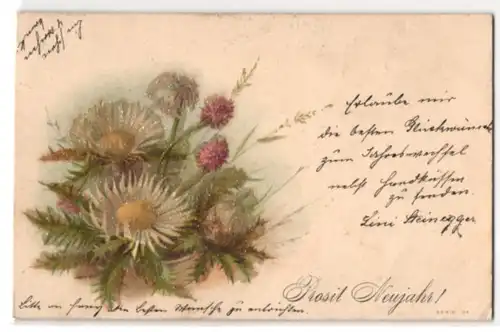 Erlaube mir
die besten Glückwünsche
zum Jahreswechsel
nebst Handküssen
zu senden.
Lini Heinegger
Prosit Neujahr!
Bitte an den besten Wünsche zu entrichten.